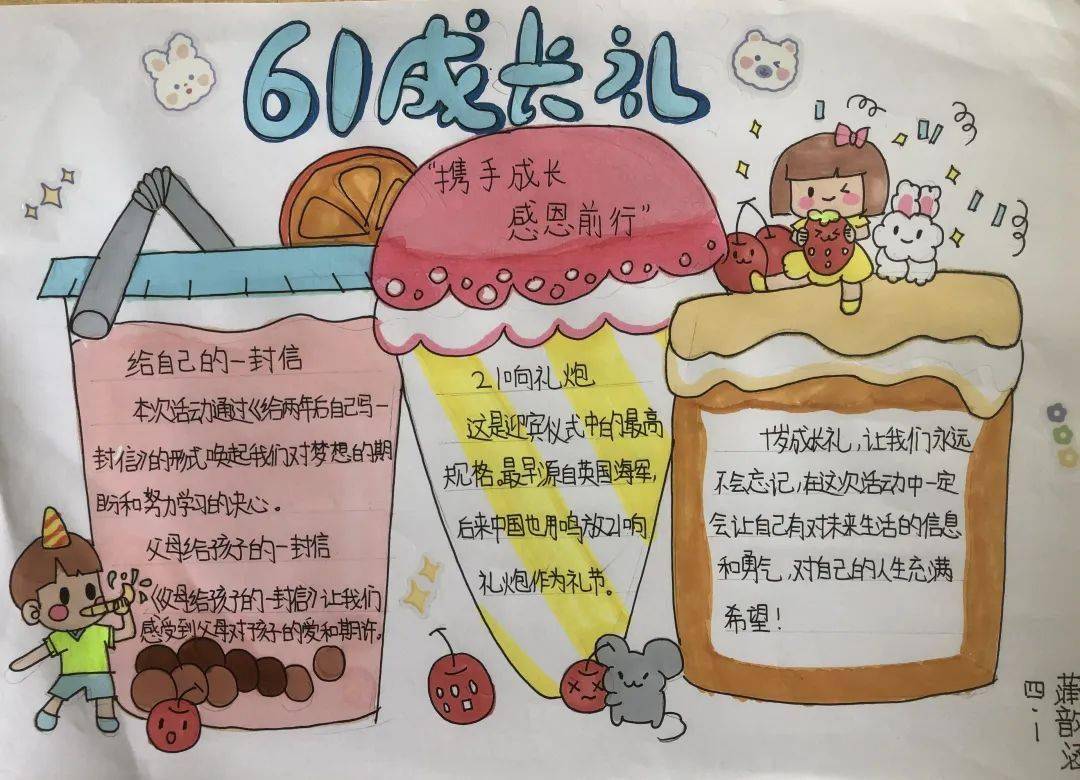 61成长礼
"携手成长
感恩前行"
给自己的一封信
本次活动通过《给两年后自己写一
封信》的形式唤起我们对梦想的期
盼和努力学习的决心。
父母给孩子的一封信
《父母给孩子的一封信》让我们
感受到父母对孩子的爱和期许。
21响礼炮
这是迎宾仪式中的最高
规格。最早源自英国海军,
后来中国也用鸣放21响
礼炮作为礼节。
十岁成长礼,让我们永远
不会忘记,在这次活动中一定
会让自己有对未来生活的信息
和勇气,对自己的人生充满
希望!
四·一
蒲韵涵